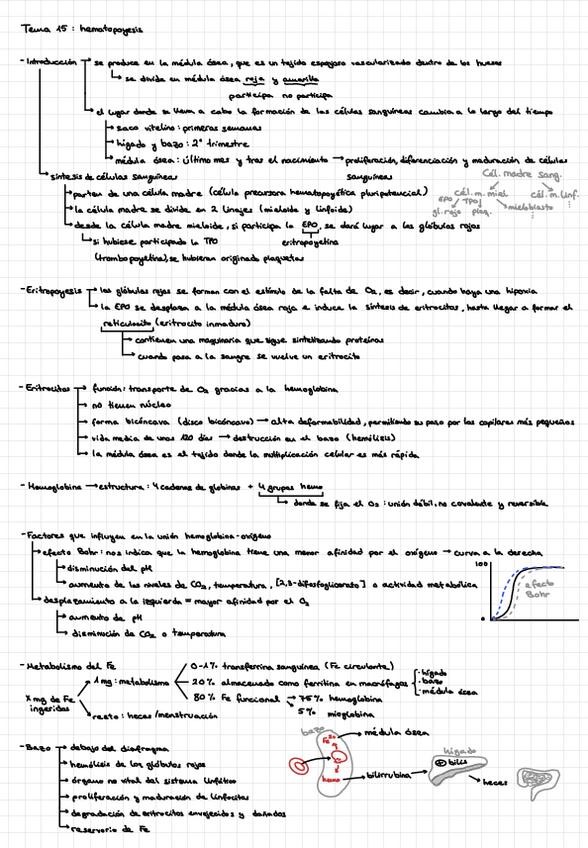 Tema 15: hematopoyesis
- Introducción → se produce en la médula ósea, que es un tejido esponjoso vascularizado dentro de los huesos
→ se divide en médula ósea roja y amarilla
participa no participa
→ el lugar donde se lleva a cabo la formación de las células sanguíneas cambia a lo largo del tiempo
→ saco vitelino: primeras semanas
→ hígado y bazo: 2º trimestre
→ médula ósea: último mes y tras el nacimiento → proliferación, diferenciación y maduración de células
sanguíneas
→ síntesis de células sanguíneas
→ parten de una célula madre (célula precursora hematopoyética pluripotencial)
→ la célula madre se divide en 2 linajes (mieloide y linfoide)
→ desde la célula madre mieloide, si participa la EPO, se dará lugar a los glóbulos rojos
eritropoyetina
→ si hubiese participado la TPO
(trombopoyetina), se hubieran originado plaquetas
Cél. madre sang.
cél. m. miel
cél. m. linf.
EPO TPO
gl. rojo plaq. mieloblasto
- Eritropoyesis → los glóbulos rojos se forman con el estímulo de la falta de O₂, es decir, cuando haya una hipoxia
→ la EPO se desplaza a la médula ósea roja e induce la síntesis de eritrocitos, hasta llegar a formar el
reticulocito (eritrocito inmaduro)
→ contienen una maquinaria que sigue sintetizando proteínas
→ cuando pasa a la sangre se vuelve un eritrocito
- Eritrocitos → función: transporte de O₂ gracias a la hemoglobina
→ no tienen núcleo
→ forma bicóncava (disco bicóncavo) → alta deformabilidad, permitiendo su paso por los capilares más pequeños
→ vida media de unos 120 días → destrucción en el bazo (hemólisis)
→ la médula ósea es el tejido donde la multiplicación celular es más rápida
- Hemoglobina → estructura: 4 cadenas de globinas + 4 grupos hemo
→ donde se fija el O₂: unión débil, no covalente y reversible
- Factores que influyen en la unión hemoglobina-oxígeno
→ efecto Bohr: nos indica que la hemoglobina tiene una menor afinidad por el oxígeno → curva a la derecha
→ disminución del pH
→ aumento de los niveles de CO₂, temperatura, [2,3-difosfoglicerato] o actividad metabólica
→ desplazamiento a la izquierda = mayor afinidad por el O₂
→ aumento de pH
→ disminución de CO₂ o temperatura
100
efecto
Bohr
0
- Metabolismo del Fe
x mg de Fe
ingeridos
1 mg: metabolismo
0-1% transferrina sanguínea (Fe circulante)
20% almacenado como ferritina en macrófagos
· hígado
· bazo
· médula ósea
80% Fe funcional → 75% hemoglobina
5% mioglobina
resto: heces/menstruación
- Bazo → debajo del diafragma
→ hemólisis de los glóbulos rojos
→ órgano no vital del sistema linfático
→ proliferación y maduración de linfocitos
→ degradación de eritrocitos envejecidos y dañados
→ reservorio de Fe
bazo
→ médula ósea
hemo → bilirrubina →
hígado
bilis
→ heces